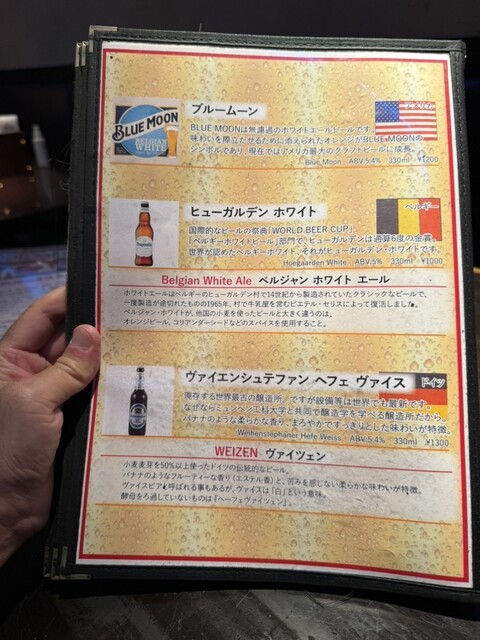 BLUE MOON
BELGIAN
WHITE
ブルームーン
アメリカ
BLUE MOONは無濾過のホワイトエールビールです。
味わいを際立たせるために添えられたオレンジがBLUE MOONの
シンボルであり、現在ではアメリカ最大のクラフトビールに成長。
Blue Moon ABV:5.4% 330ml ¥1200
ヒューガルデン ホワイト
ベルギー
国際的なビールの祭典「WORLD BEER CUP」
「ベルギーホワイトビール」部門で、ヒューガルデンは通算6度の金賞。
世界が認めたベルギーホワイト、それがヒューガルデン・ホワイトです。
Hoegaarden White ABV:5% 330ml ¥1000
Belgian White Ale ベルジャン ホワイト エール
ホワイトエールはベルギーのヒューガルデン村で14世紀から製造されていたクラシックなビールで、
一度製造が途切れたものの1965年、村で牛乳屋を営むピエテル・セリスによって復活しました。
ベルジャン・ホワイトが、他国の小麦を使ったビールと大きく違うのは、
オレンジピール、コリアンダーシードなどのスパイスを使用すること。
ヴァイエンシュテファン ヘフェ ヴァイス
ドイツ
現存する世界最古の醸造所。ですが設備等は世界でも最新です。
なぜならミュンヘン工科大学と共同で醸造学を学べる醸造所だから。
バナナのような柔らかな香り、まろやかですっきりとした味わいが特徴。
Weihenstephaner Hefe Weiss ABV:5.4% 330ml ¥1300
WEIZEN ヴァイツェン
小麦麦芽を50%以上使ったドイツの伝統的なビール。
バナナのようなフルーティーな香り(エステル香)と、苦みを感じない柔らかな味わいが特徴。
ヴァイスビアと呼ばれる事もあるが、ヴァイスは「白」という意味。
酵母をろ過していないものは「ヘーフェヴァイツェン」。